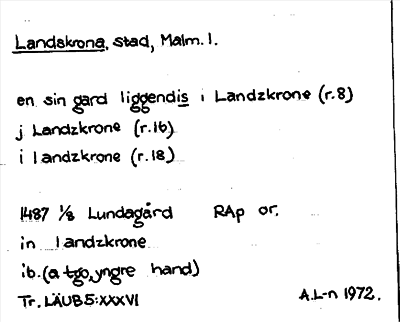 Landskrona, stad, Malm. l.
en sin gard liggendis i Landzkrone (r.8)
j Landzkrone (r.16)
i landzkrone (r.18)
1487 1/8 Lundagård RAp or.
in landzkrone
ib. (a tgo, yngre hand)
Tr. LÄUB 5:XXXVI A.L-n 1972.